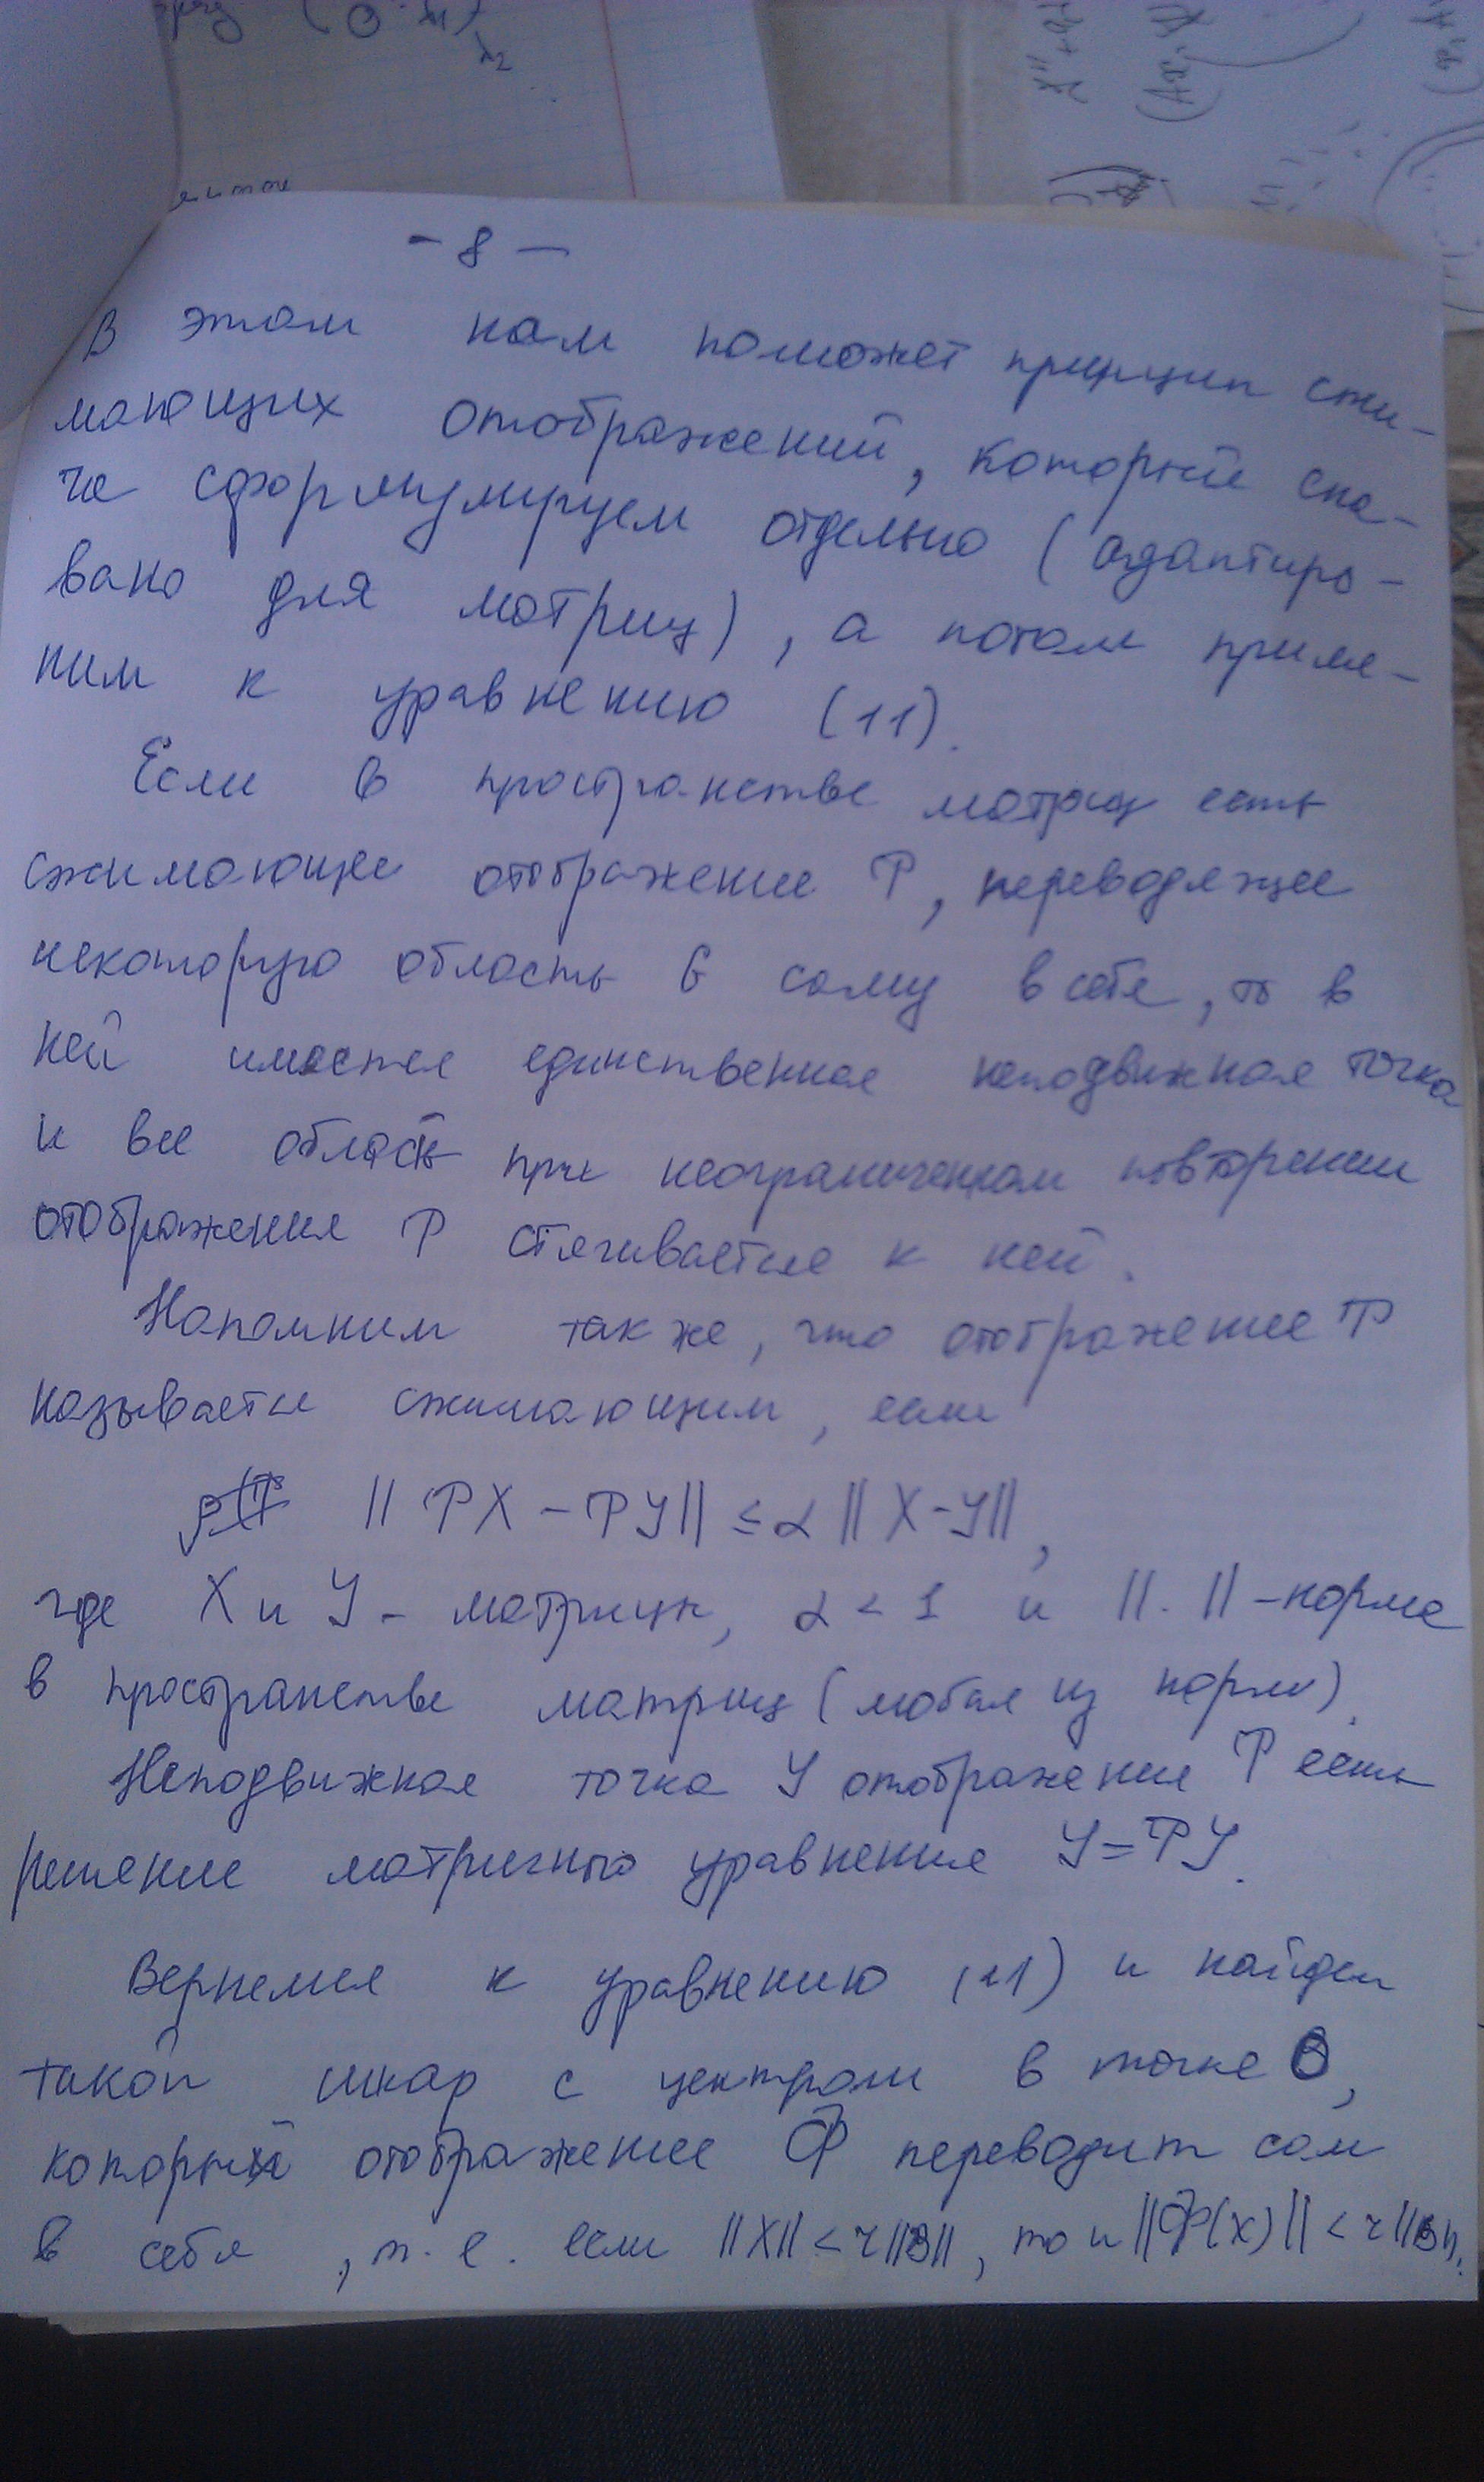 - 8 -
В этом нам поможет принцип сжи-
мающих отображений, который сна-
ча сформулируем отдельно (адаптиро-
вано для матриц), а потом приме-
ним к уравнению (11).
Если в пространстве матриц есть
сжимающее отображение P, переводящее
некоторую область G саму в себя, то в
ней имеется единственная неподвижная точка
и вся область при неограниченном повторении
отображения P стягивается к ней.
Напомним также, что отображение P
называется сжимающим, если
|| PX - PY || ≤ α || X - Y ||,
где X и Y - матрицы, α < 1 и ||.|| - норма
в пространстве матриц (любая из норм).
Неподвижная точка Y отображения P есть
решение матричного уравнения Y = PY.
Вернемся к уравнению (11) и найдем
такой шар с центром в точке 0,
который отображение Ф переводит сам
в себя, т. е. если ||X|| < r ||B||, то и ||Ф(X)|| < r ||B||.